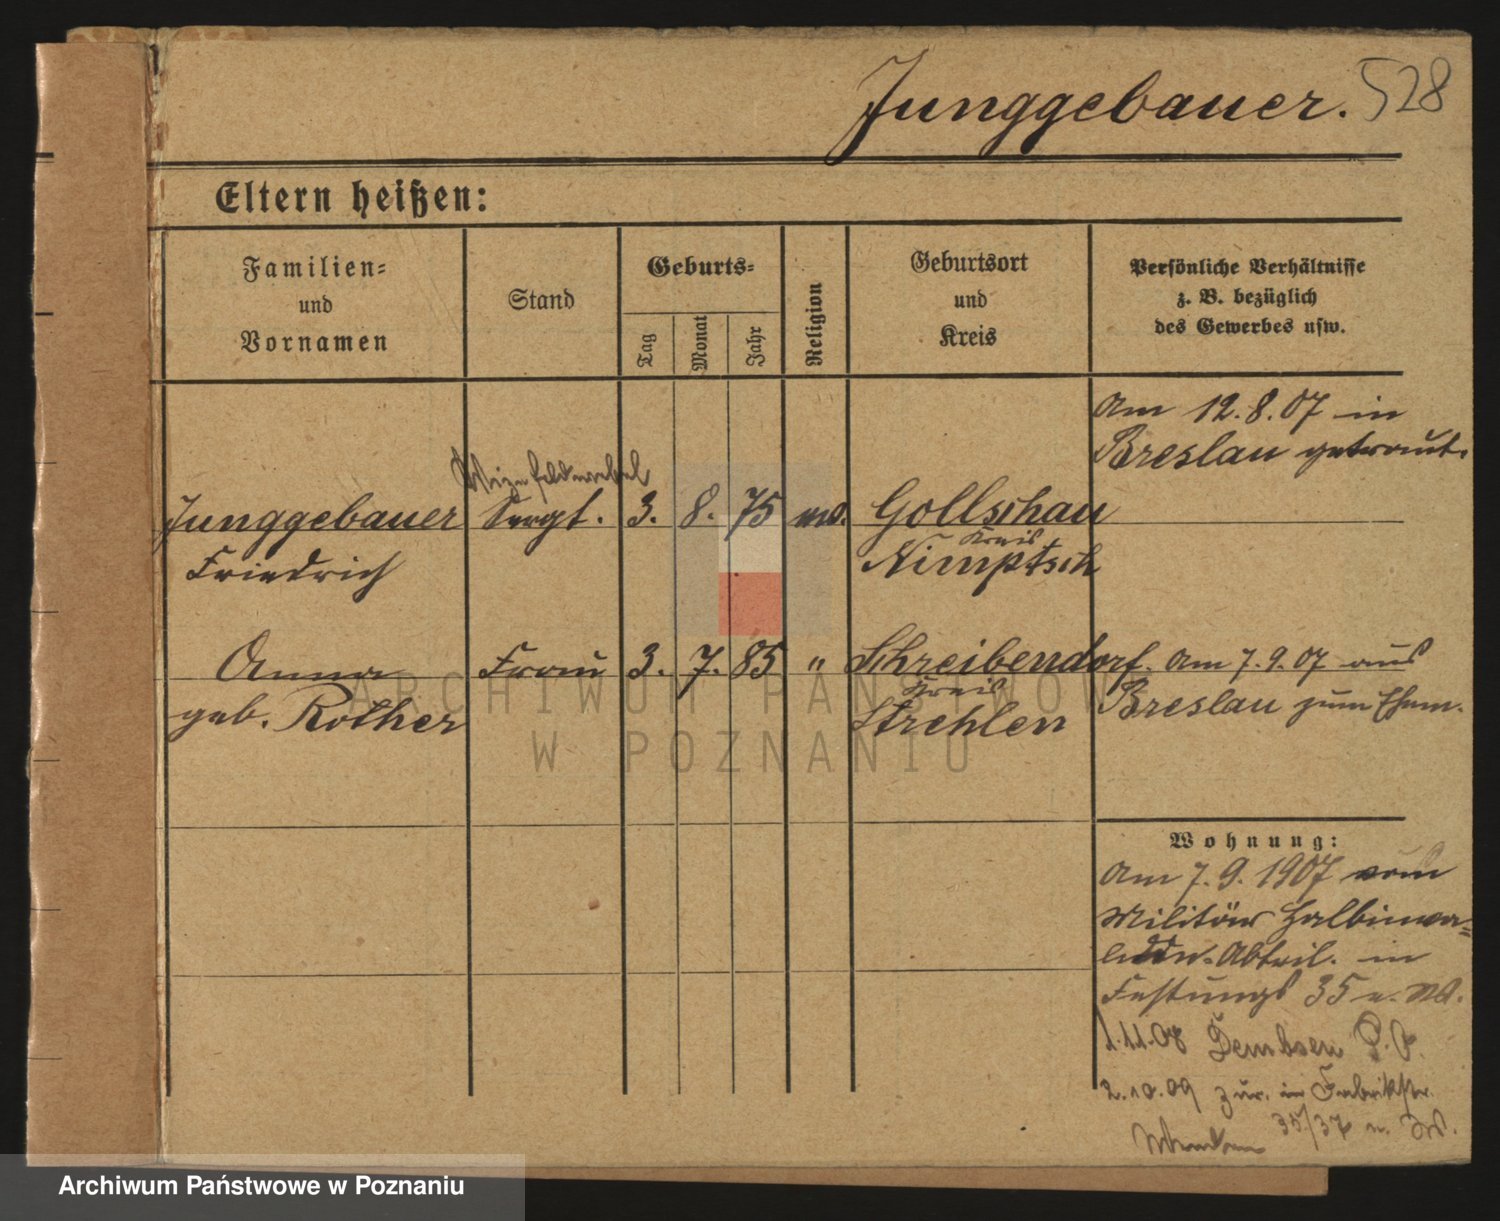 Junggebauer. 528
Eltern heißen:
Familien-
und
Vornamen
Stand
Geburts-
Tag
Monat
Jahr
Religion
Geburtsort
und
Kreis
Persönliche Verhältnisse
z. B. bezüglich
des Gewerbes usw.
Am 12.8.07 in
Breslau getraut.
Vizefeldwebel
Junggebauer Sergt. 3. 8. 75 Gollschau
Kreis
Friedrich Nimptsch
Anna Frau 3. 7. 85 " Schreibendorf. Am 7.9.07 aus
Kreis
geb. Rother Strehlen Breslau zum Ehem.
Wohnung:
Am 7.9.1907 vom
Militär Halbinva-
liden-Abteil. in
Festungs 35
1.11.08 Dembsen
2.10.09 zur. in Fabrikstr.
35/37
ARCHIWUM PAŃSTWOWE
W POZNANIU
Archiwum Państwowe w Poznaniu